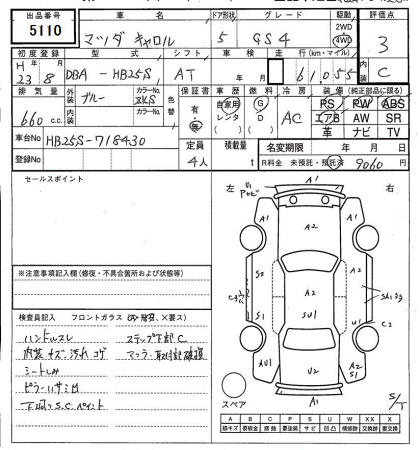 出品番号 車名 ドア形状 グレード 駆動 評価点
5110 マツダ キャロル 5 GS4 2WD 4WD 3
初度登録 型式 シフト 車検 走行(km・マイル) 内装
H 23年 8月 DBA-HB25S AT 年 月 61,055 C
排気量 外装 カラーNo. 色替 保証書 車歴 燃料 冷房 装備(純正部品に限る)
660c.c. ブルー ZKS 有・無 自家用 レンタ G D AC PS PW ABS
内装 カラーNo. エアB AW SR
革 ナビ TV
車台No HB25S-718430 定員 積載量 名変期限 年 月 日
登録No 4人 t R料金 未預託・預託済 9060円
セールスポイント
左 右
A1
A1 A2 A1
S2 A2
S1 SU1 U1 C2
AU1 U2 A2 S1
A1
スペア
S/T
※注意事項記入欄(修復・不具合箇所および状態等)
検査員記入 フロントガラス
ハンドルスレ ステップ下部C
内装キズ、汚れ、コゲ マフラー取付部破損
シートしみ
ピラーハサミ凹
下廻りS.C.ペイント
A B C P S U W XX X
線キズ 要板金 腐蝕 要塗装 サビ 凹凸 補修跡 交換跡 要交換